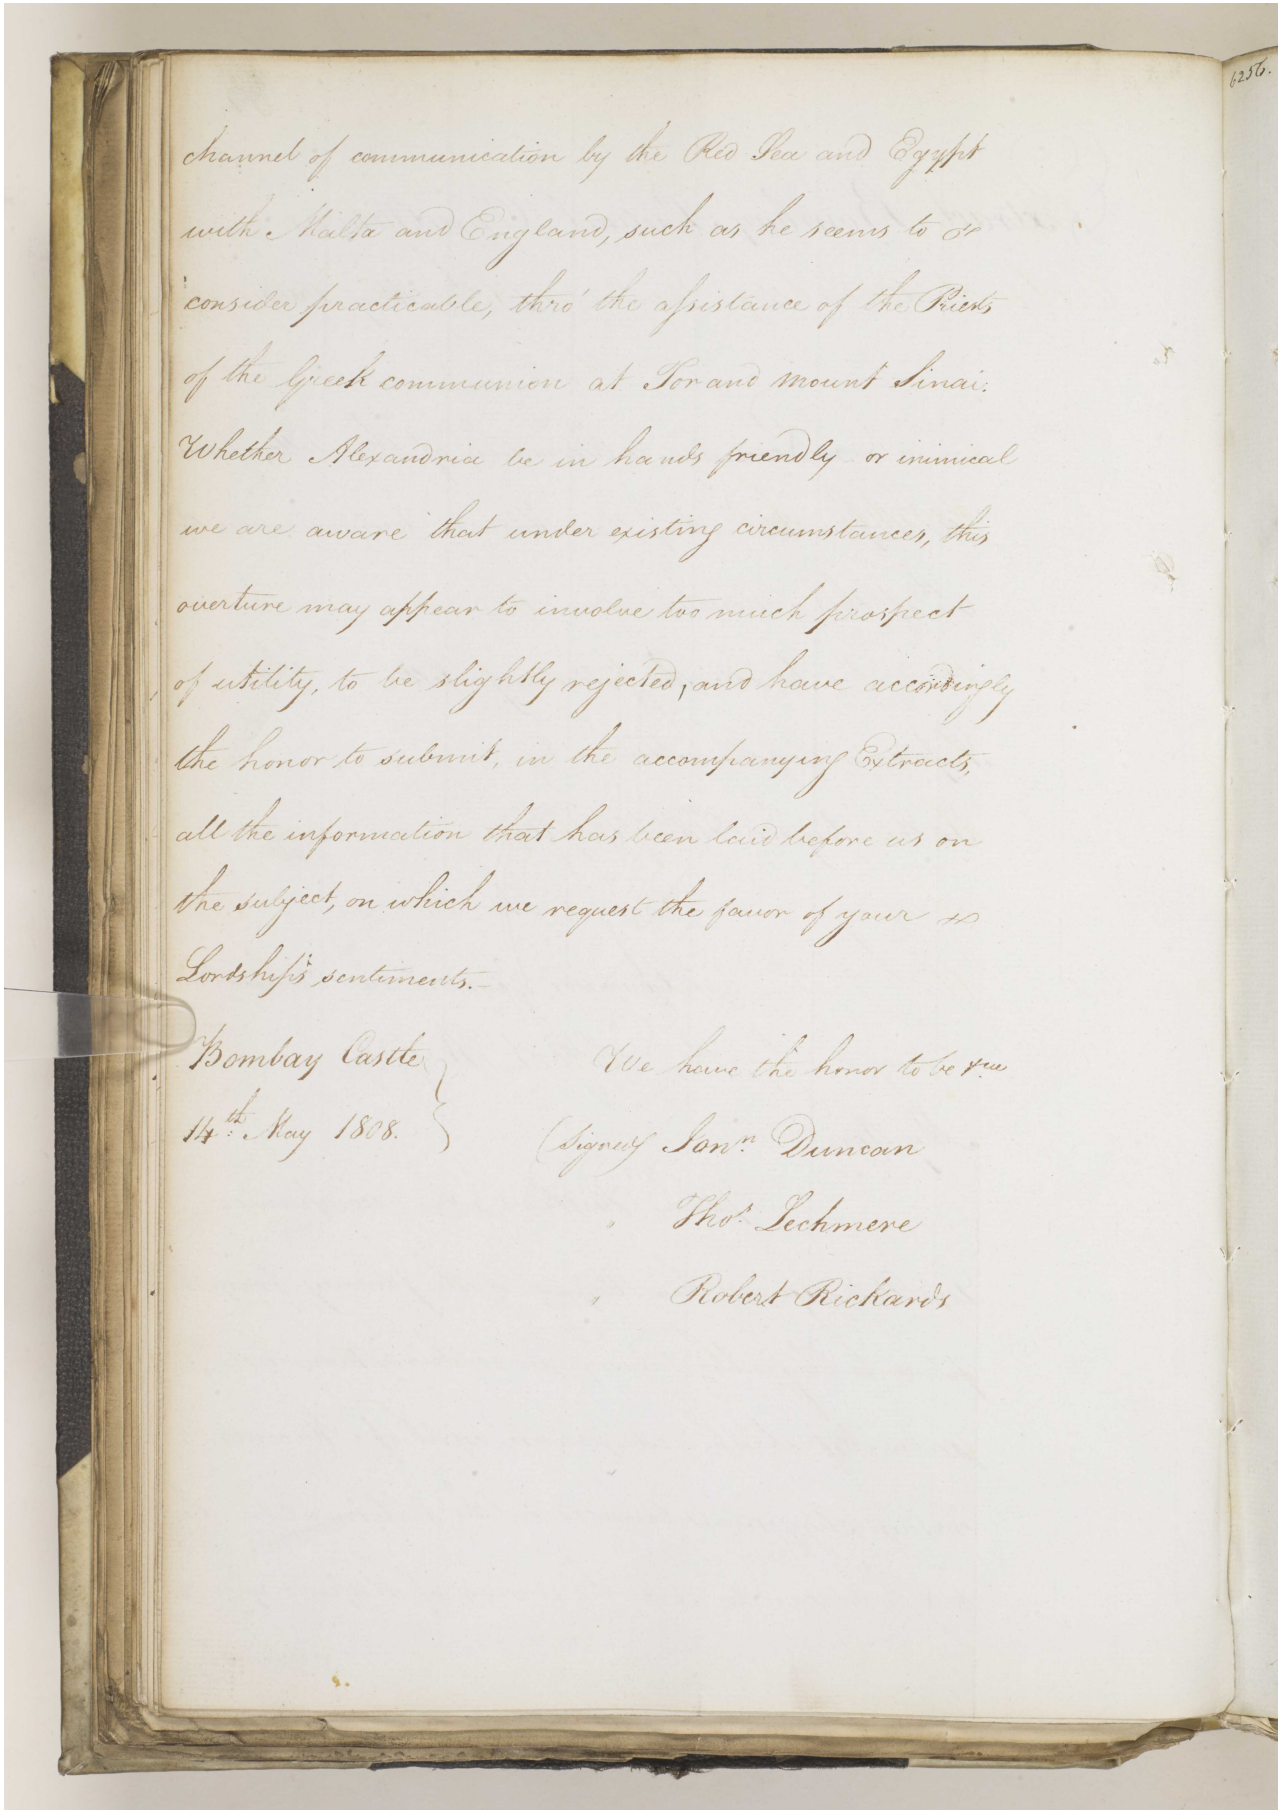 6256.
channel of communication by the Red Sea and Egypt
with Malta and England, such as he seems to
consider practicable, thro' the assistance of the Priests
of the Greek communion at Tor and Mount Sinai.
Whether Alexandria be in hands friendly or inimical
we are aware that under existing circumstances, this
overture may appear to involve too much prospect
of utility, to be slightly rejected, and have accordingly
the honor to submit, in the accompanying Extracts,
all the information that has been laid before us on
the subject, on which we request the favor of your
Lordship's sentiments.—
Bombay Castle
14th May 1808.
We have the honor to be &ca
(Signed) Jonn. Duncan
" Thos. Lechmere
" Robert Rickards